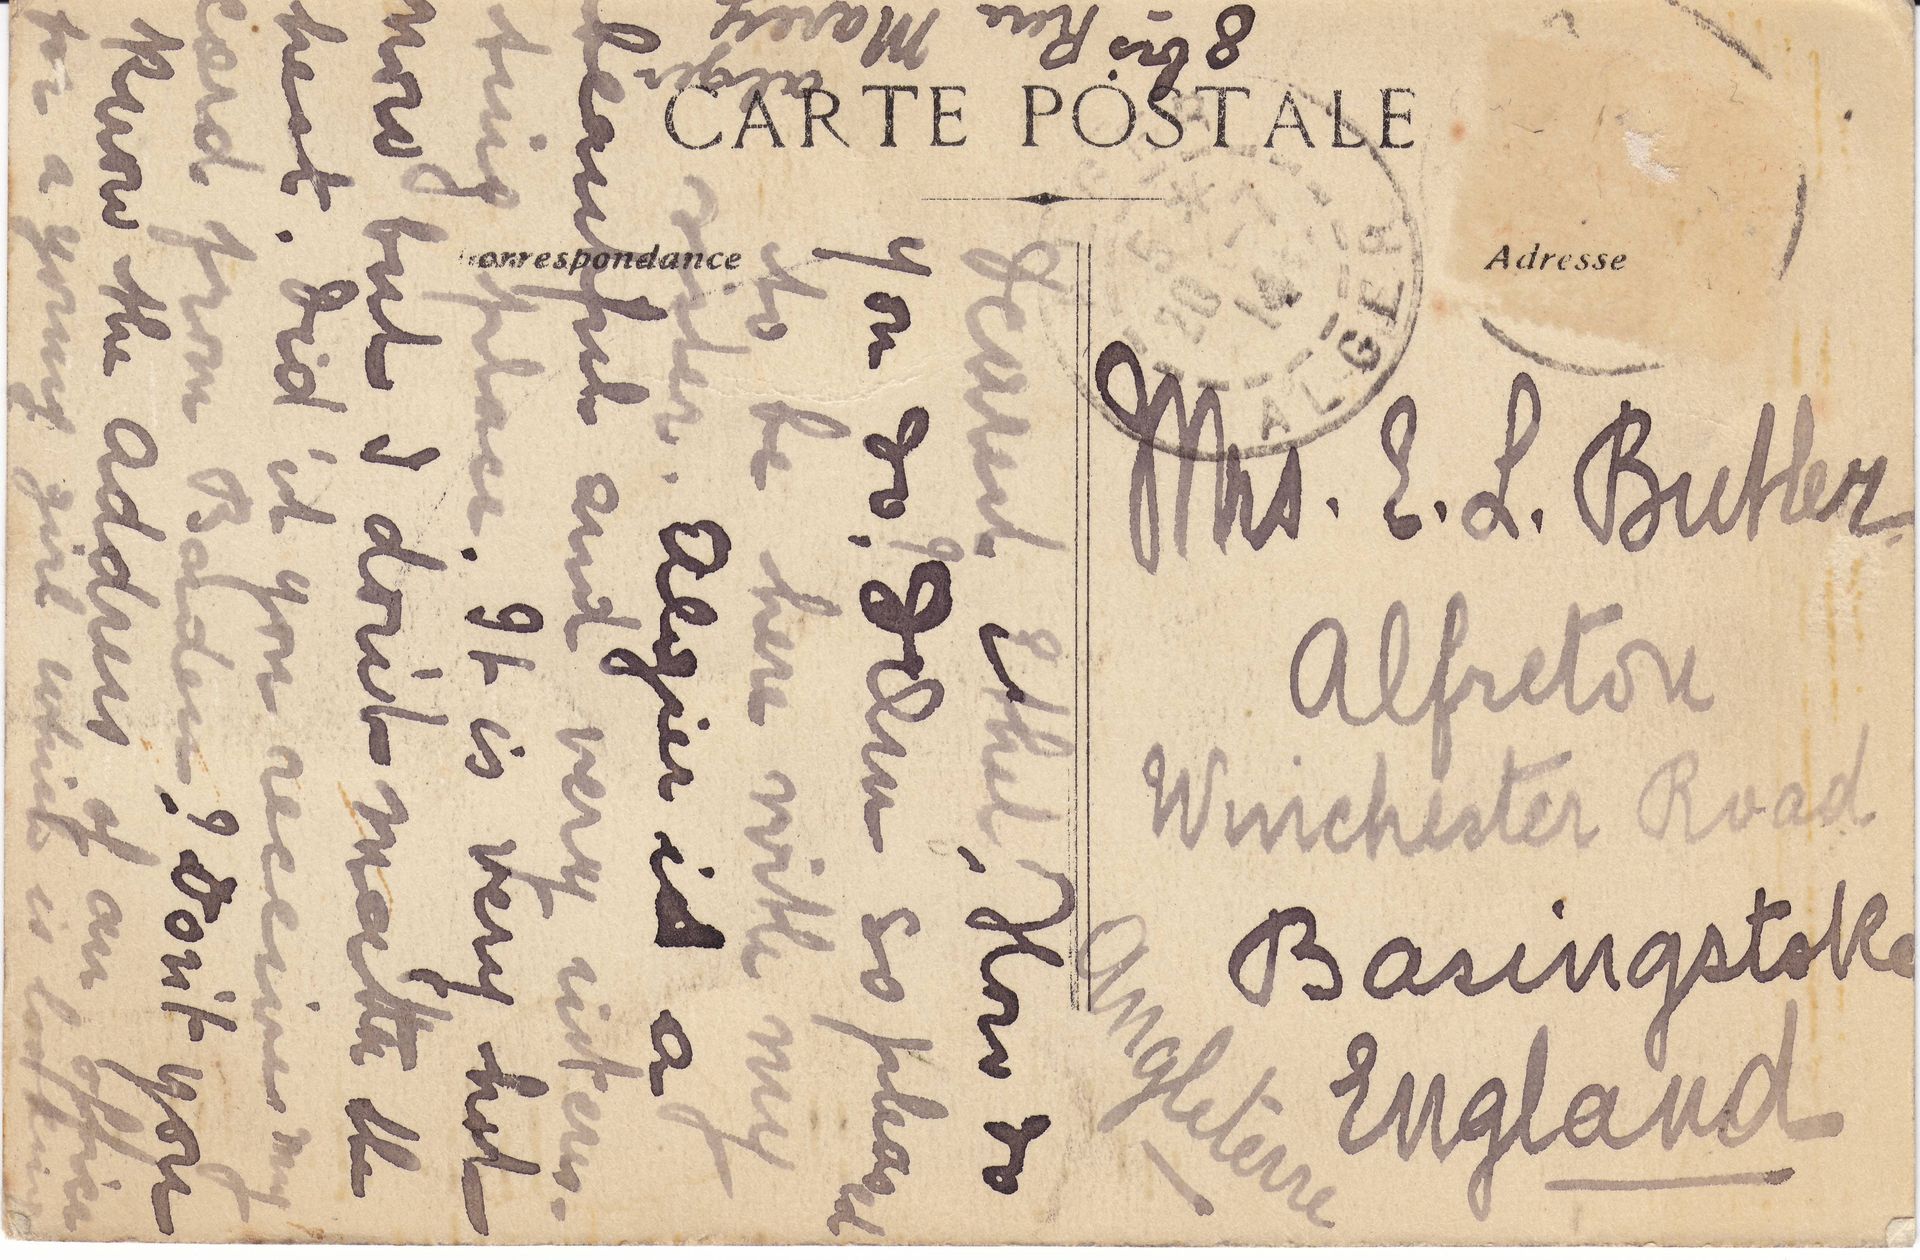 8 bis Rue
Marey
Alger
CARTE POSTALE
Correspondance
Adresse
ALGER
5 * 7
20 14
ALGER
Dearest Ethel, How do
you do, I am so pleased
to be here with my
sister. Algier is a
beautiful and very interes-
ting place. It is very hot
now but I don't matte the
heat. Did it you receive my
card from Baden? Don't you
know the address of an office
for a young girl which is looking
Mrs. E. L. Butler
Alfreton
Winchester Road
Basingstoke
England
Angleterre